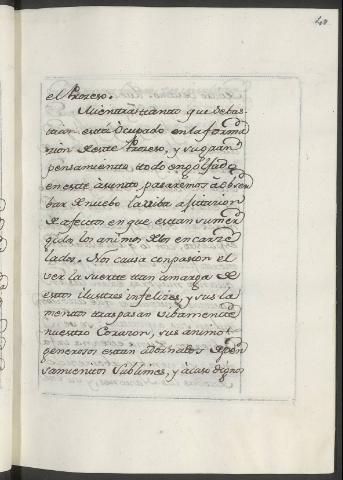 el Proceso.
Mientrastanto que Debas-
tacion está ócupado en la forma
cion de este Proceso, y su gran
pensamiento todo engolfado
en este asunto pasaremos à obser
bar de nuebo la viba ajitacion
de afectos en que estàn sumer
gidos los animos de los encarze
lados. Nos causa conpasion el
ver la suerte tan amarga de
estos ilustres infelizes, y sus la
mentos traspasan vibamente
nuestro Corazon, sus animos
generosos estan adornados de pen
samientos sublimes, y àcaso dignos